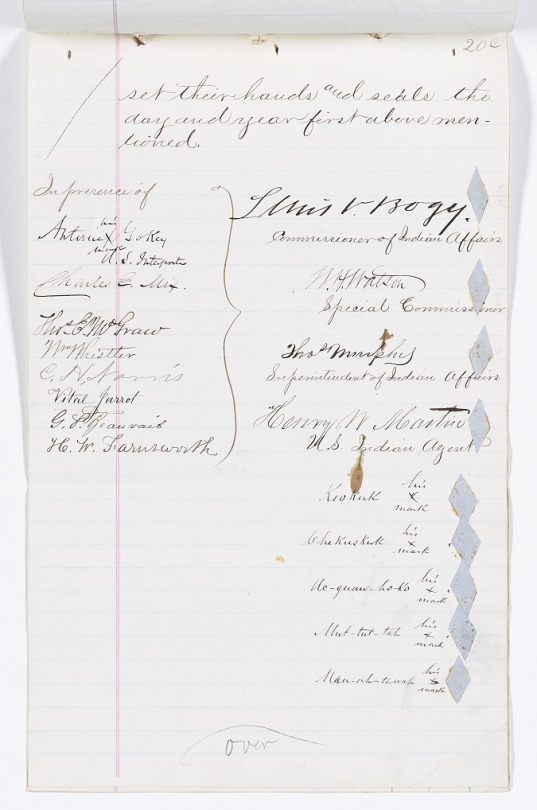 20c
set their hands and seals the
day and year first above men-
tioned.
In presence of
Antoine his x mark Gokey
U.S. Interpreter
Charles E. Mix.
Thos. E. McGraw
Wm Whistler
C. H. Norris
Vital Jarrot
G. P. Beauvais
H. W. Farnsworth
Lewis V. Bogy.
Commissioner of Indian Affairs
W. H. Watson
Special Commissioner
Thos Murphy
Superintindent of Indian Affairs
Henry W Martin
U.S. Indian Agent
Keokuk his x mark
Chekuskuk his x mark
Uc-quaw-ho-ko his x mark
Mut-tut-tah his x mark
Man-ah-towah his x mark
over